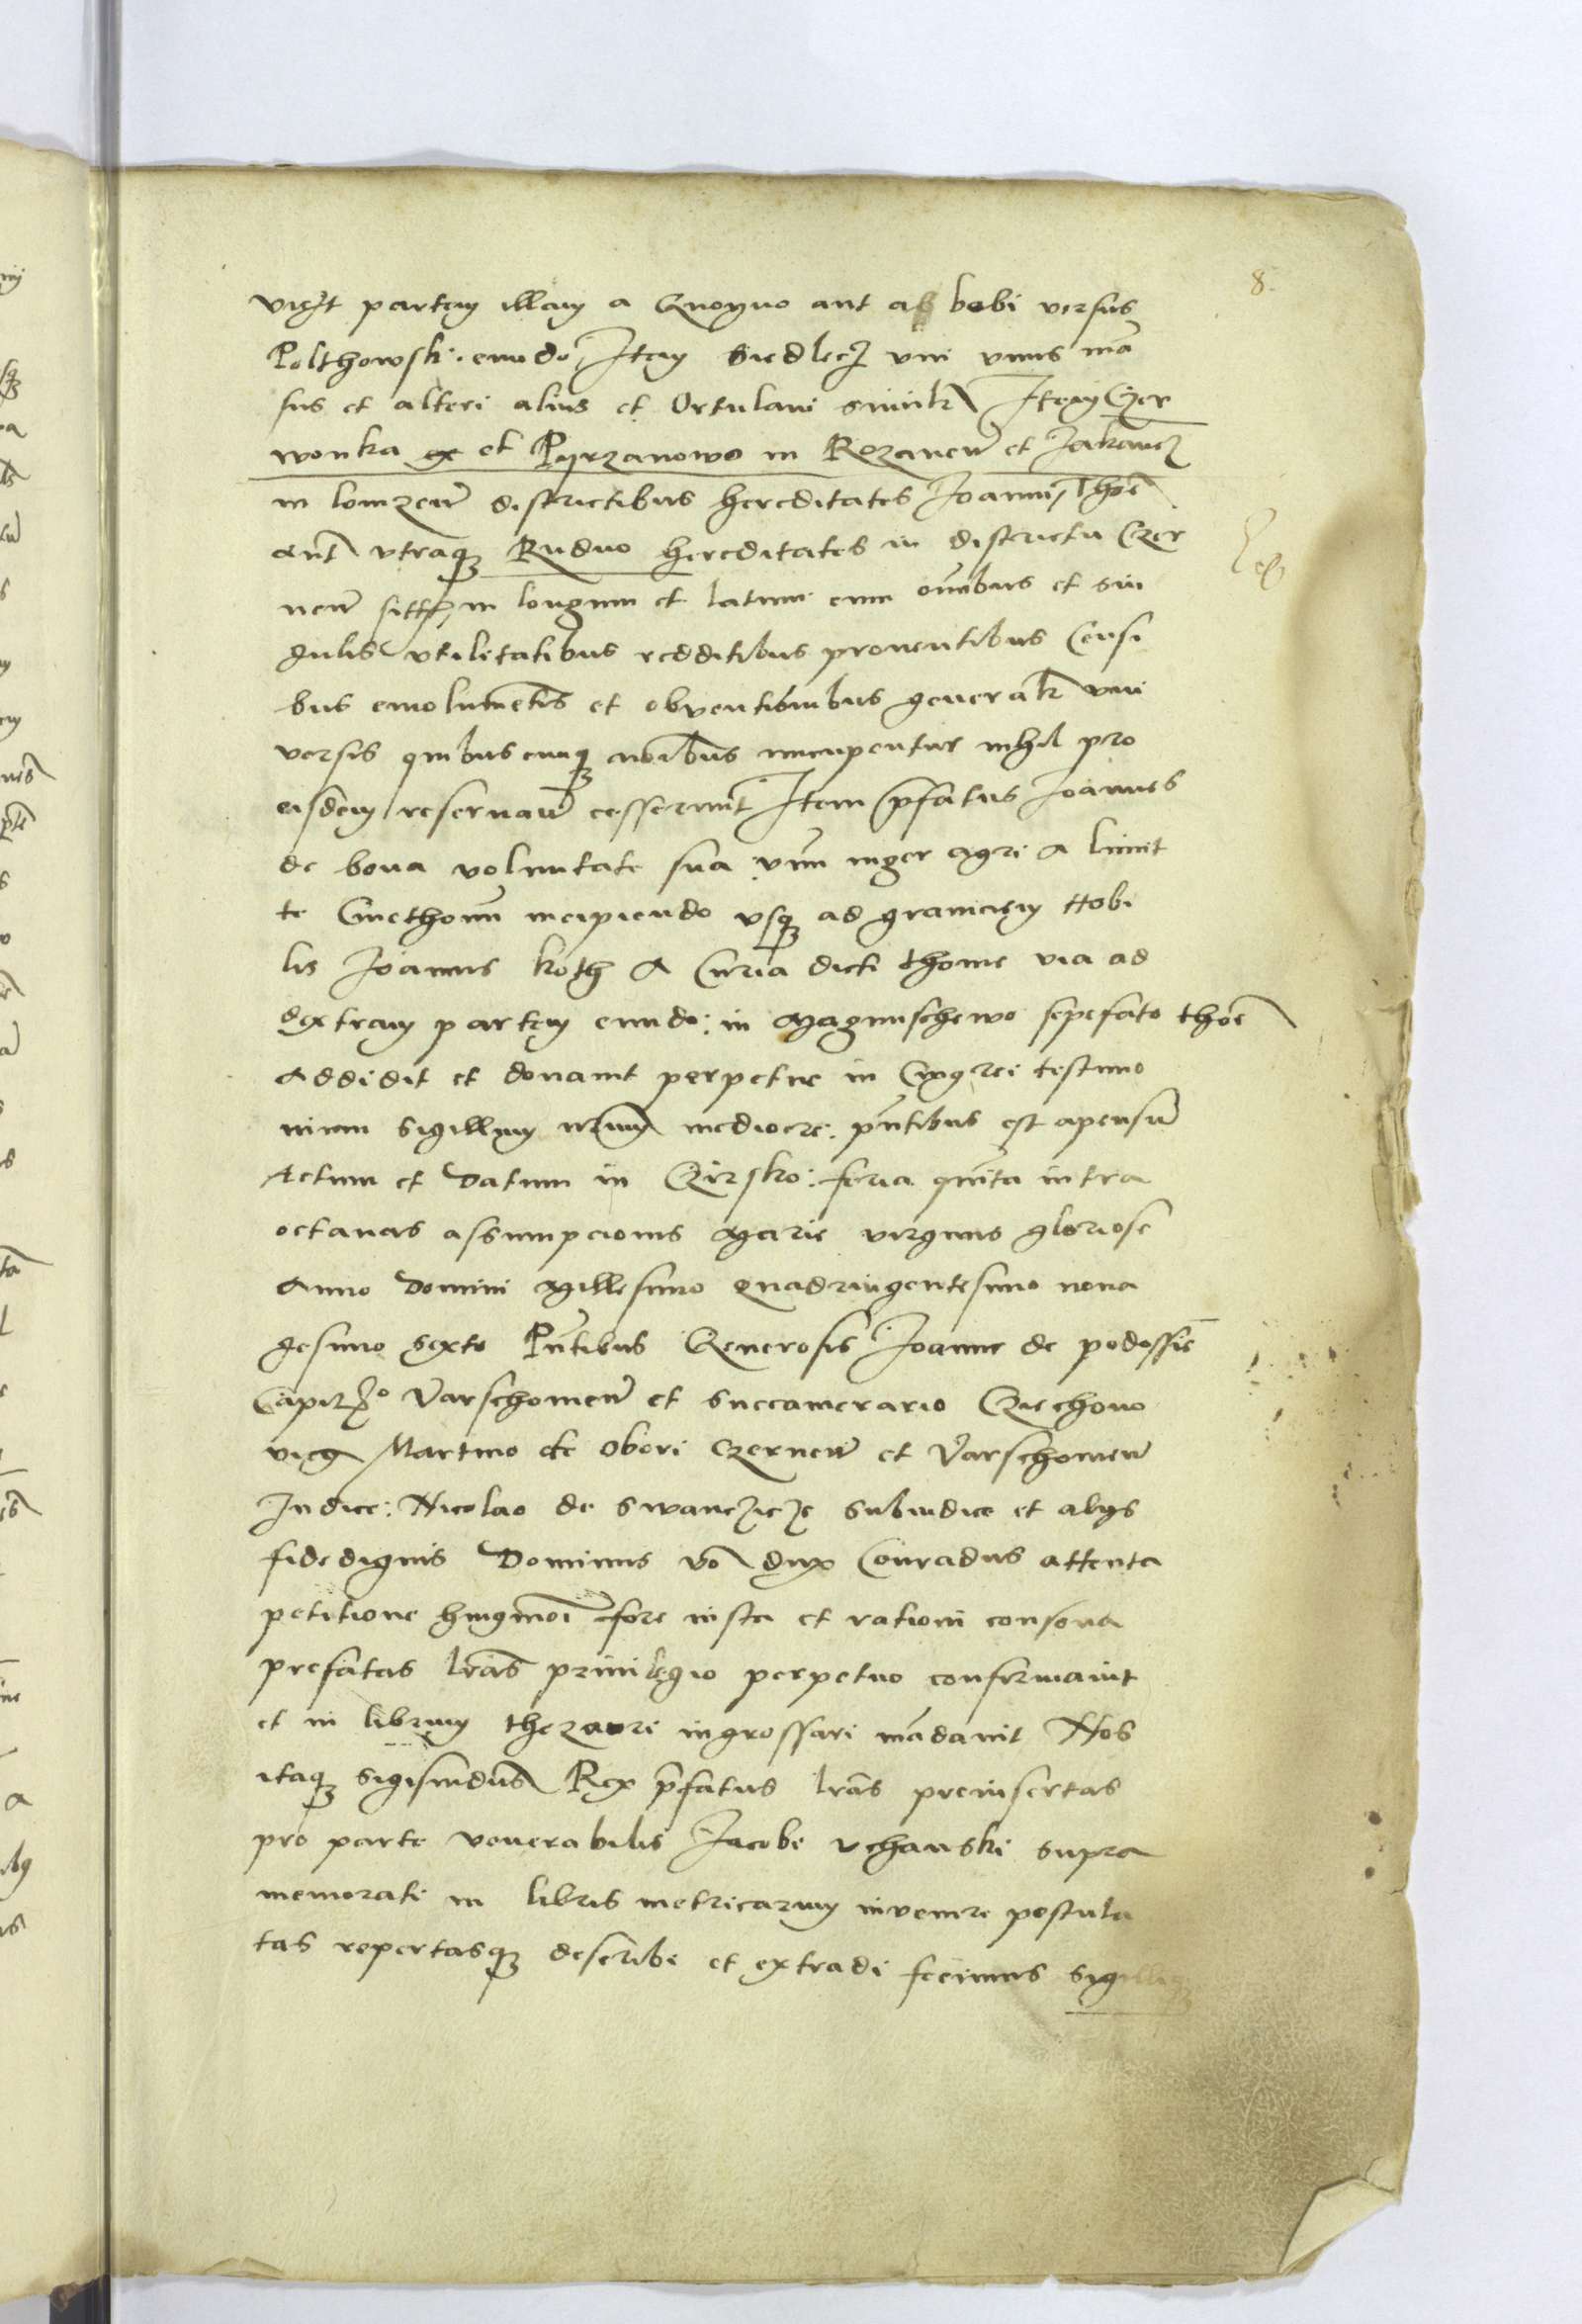 8.
partem illam a Gnoyno aut ab bobi versus
Polthowski . eundo , Item Siedlecz vni vnus mā
sus et alteri alius et Ortulani similr Item Czer
wonka et Pyrzanowo in Rozanen et Jakancz
in lomzen districtibus hereditates Joanni, Thoē
aut vtraqz Rudno hereditates in districtu Czer
nen in longum et latum cum omībus et sin
gulis vtilitatibus redditibus prouentibus Censi
bus emolumētis et obventionibus generalr vni
versis quibuscunqz noībus nuncupentur nihil pro
eisdem reseruan cesserunt Item p̄fatus Joannes
de bona voluntate sua vnū iuger agri a limit
te Cmethonū incipiendo vsqz ad graniciem Nobi
lis Joannis koth A Curia dicti thome via ad
dextram partem eundo : in Magnuschewo sepefato thoē
Addidit et donauit perpetue in Cuius rei testimo
nium sigillum nrūm mediocre . pn̄tibus est apensū
Actum et Datum in Czirsko : feria quīta intra
octauas assumpcionis Marie virginis gloriose
Anno Domini Millesimo quadringentesimo nona
gesimo sexto Pn̄tibus Generosis Joanne de podossie
Varschouien et Succamerario Cziechono
vien Martino de Obori Czernen et Varschouien
Judice : Nicolao de Swanczicze Subiudice et alijs
fidedignis Dominus vō dux Conradus attenta
petitione huiusmōi fore iusta et rationi consona
prefatas lrās priuilegio perpetuo confirmauit
et in librum thezauri ingrossari mādauit Nos
itaqz Sigismūdus Rex p̄fatus lrās preinsertas
pro parte venerabilis Jacobi vchanski supra
memorati in libris metricarum inuenire postula
tas repertasqz describi et extradi fecimus